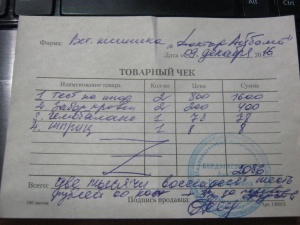 Фирма: Вет. клиника "Доктор Айболит"
Дата 09 декабря 2016
ТОВАРНЫЙ ЧЕК
Наименование товара Кол-во Цена Сумма
1. Тест на 2 800 1600
2. Забор крови 2 200 400
3. Гемобаланс 1 78 78
4. Шприц 1 8 8
2086
Всего: Две тысячи восемьдесят шесть
рублей 00 коп
Подпись продавца